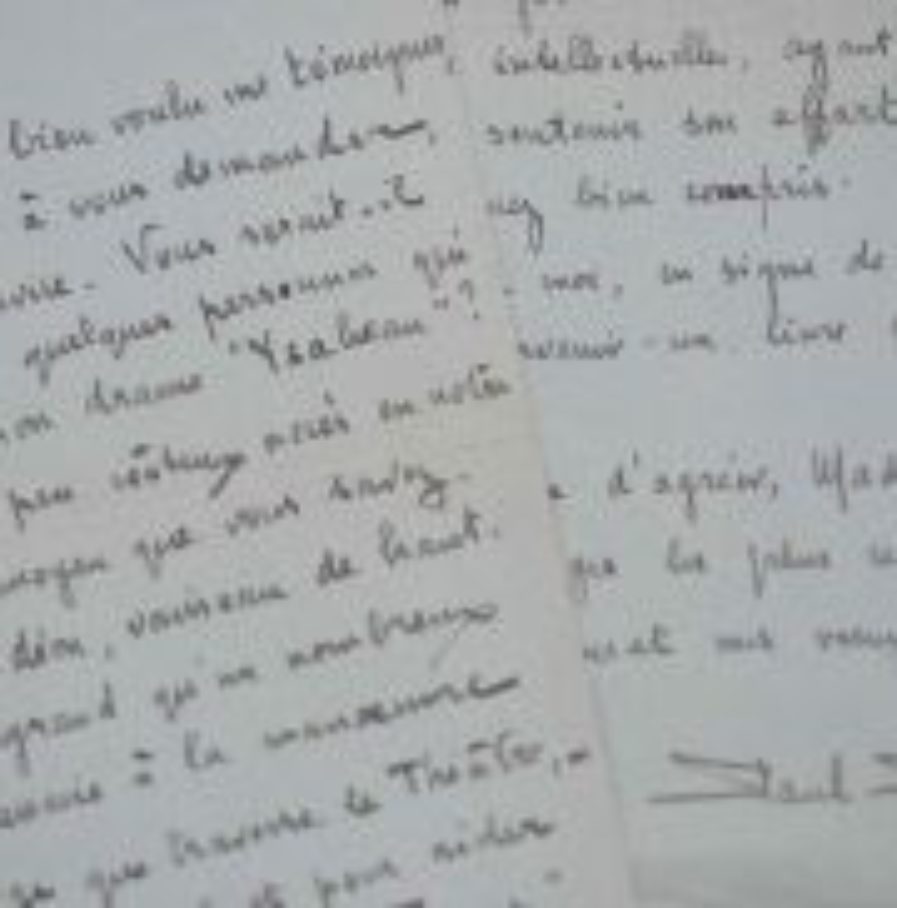 bien voulu me témoigner,
à vous demander,
Vous serait-il
quelques personnes qui
mon drame "Ysabeau"?
peu coûteux accès en votre
moyen que vous savez.
déon, vaisseau de haut.
grand qu'un nombreux
à la manoeuvre
que traverse le Théâtre,-
et pour aider
intellectuelle, ayant
soutenir son effort
bien compris.
moi, en signe de
un livre
d'agréer, Mad
les plus
mes voeux
Paul